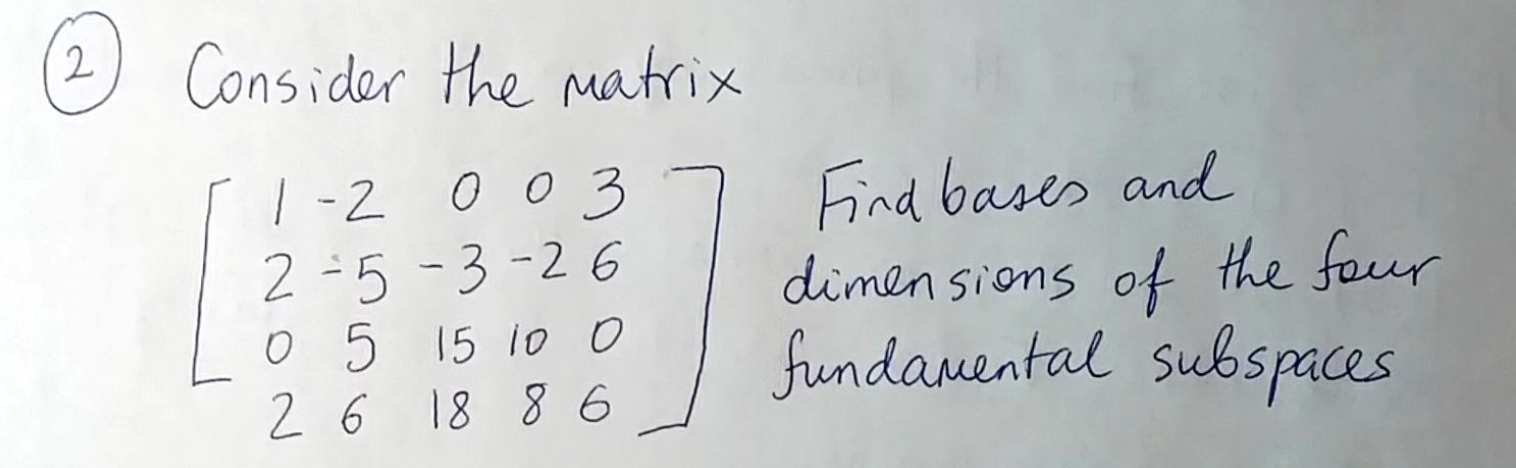 2 Consider the matrix
1 -2 0 0 3 Find bases and
2 -5 -3 -2 6 dimensions of the four
0 5 15 10 0 fundamental subspaces
2 6 18 8 6